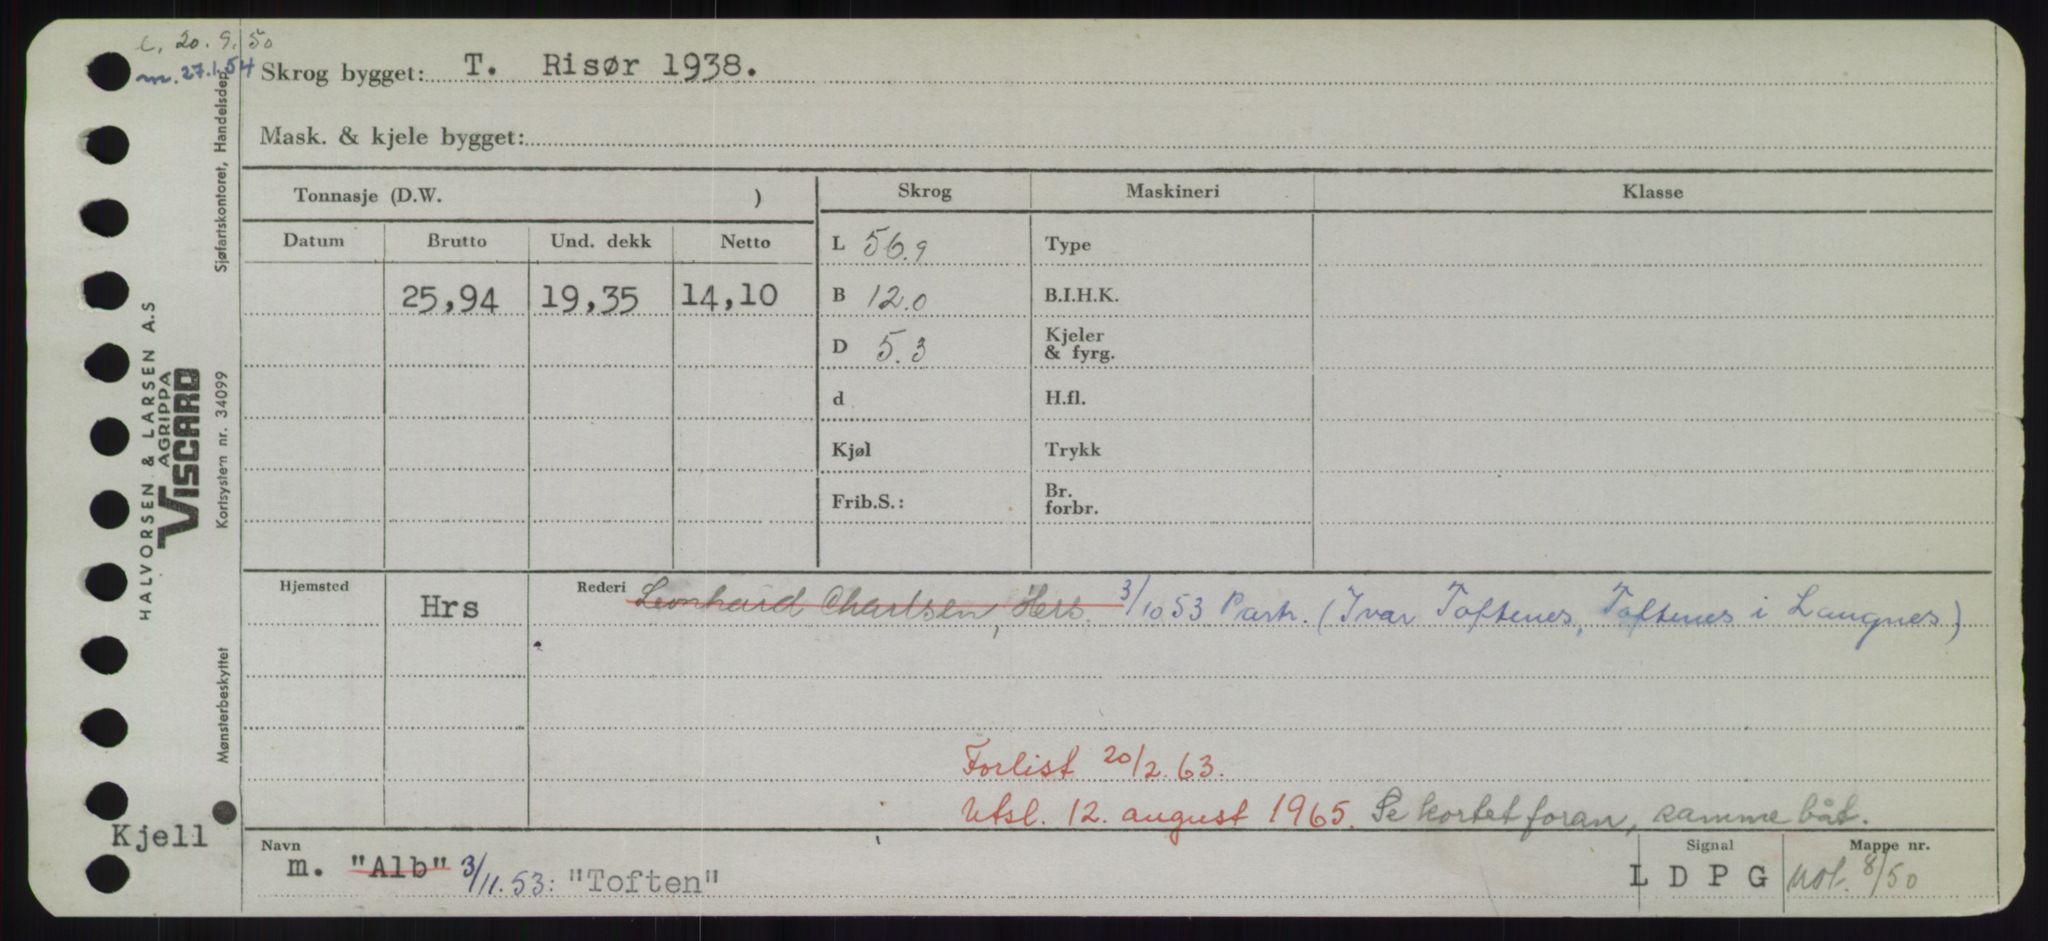 c. 20.9.50
m. 27.1.54
Skrog bygget: T. Risør 1938.
Mask. & kjele bygget:
Tonnasje (D.W. ) Skrog Maskineri Klasse
Datum Brutto Und. dekk Netto L 56.9 Type
25,94 19,35 14,10 B 12.0 B.I.H.K.
D 5.3 Kjeler & fyrg.
d H.fl.
Kjøl Trykk
Frib.S.: Br. forbr.
Hjemsted Hrs Rederi Leonhard Charlsen, Herø. 3/10 53 Partr. (Ivar Toftenes, Toftenes i Langnes)
Forlist 20/2.63.
Utsl. 12. august 1965. Se kortet foran, samme båt.
Kjell
Navn m. "Alb" 3/11.53: "Toften" Signal LDPG Mappe nr. 8/50
Sjøfartskontoret, Handelsdep.
HALVORSEN & LARSEN A.S
AGRIPPA
VISCARD
Kortsystem nr. 34099
Mønsterbeskyttet